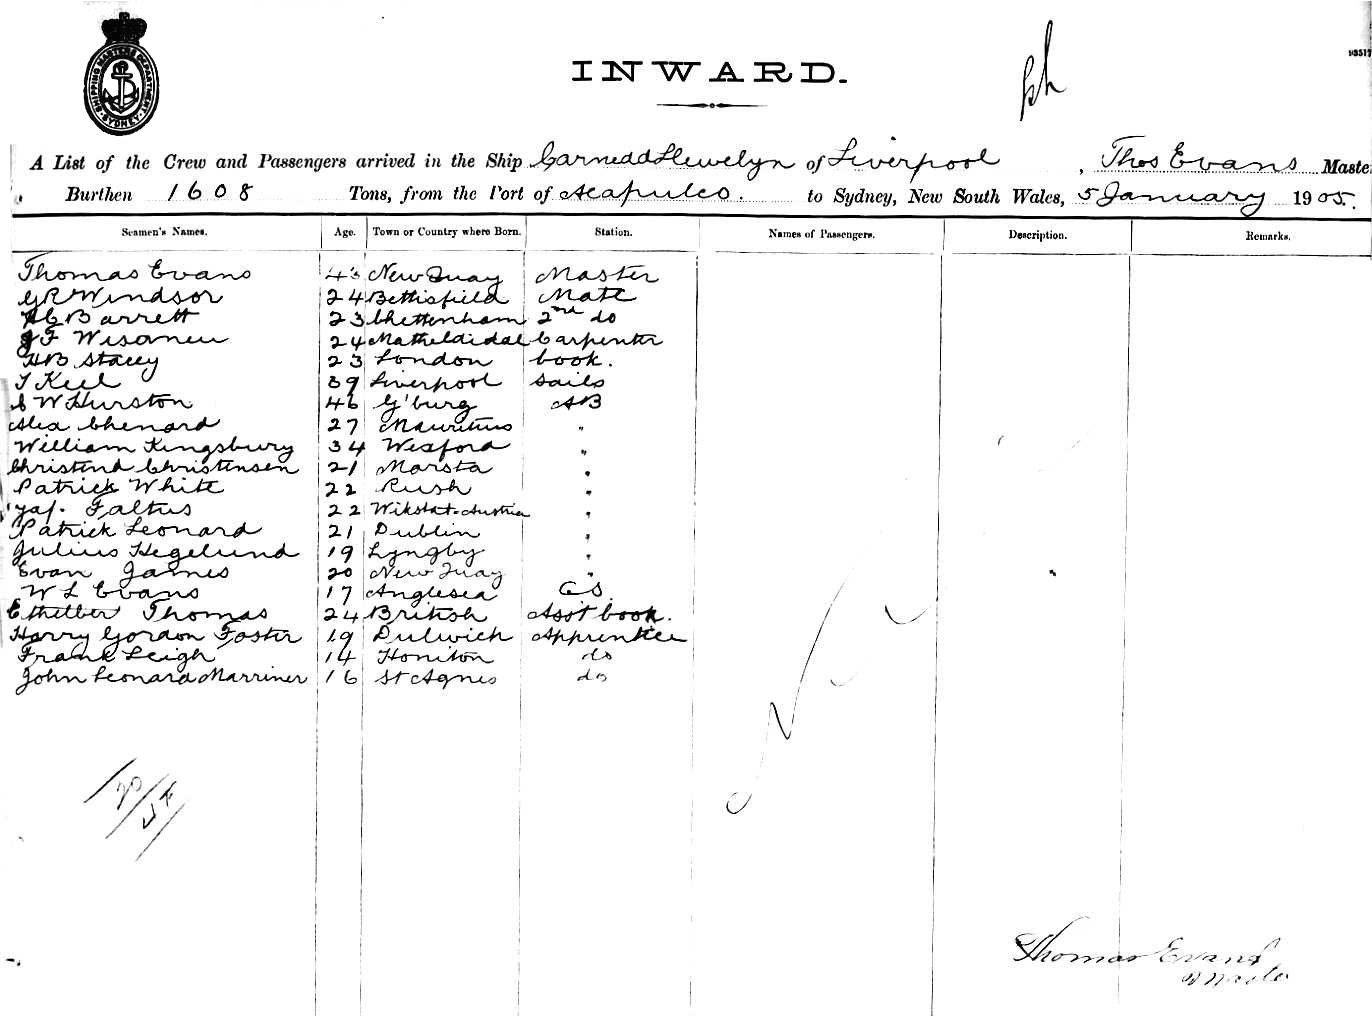 SHIPPING MASTERS DEPARTMENT
SYDNEY
INWARD.
A List of the Crew and Passengers arrived in the Ship Carnedd Llewelyn of Liverpool, Thos Evans Maste
Burthen 1608 Tons, from the Port of Acapulco. to Sydney, New South Wales, 5 January 1905.
Seamen's Names. Age. Town or Country where Born. Station. Names of Passengers. Description. Remarks.
Thomas Evans 43 New Quay Master
G R Windsor 24 Bettisfield Mate
H C Barrett 23 Cheltenham 2nd do
J F Wisaneu 24 Matheldidal Carpenter
H B Stacey 23 London Cook.
T Keel 39 Liverpool Sails
S W Hurston 46 G'burg AB
Alex Chenard 27 Mauritius "
William Kingsbury 34 Wexford "
Christend Christensen 21 Marsta "
Patrick White 22 Rush "
Faltus 22 Wikstat Austria "
Patrick Leonard 21 Dublin "
Julius Hegelund 19 Lyngby "
Evan James 20 New Quay "
W L Evans 17 Anglesea OS
Ethelber Thomas 24 British Asst Cook.
Harry Gordon Foster 19 Dulwich Apprentice
Frank Leigh 14 Honiton do
John Leonard Marriner 16 St Agnes do
Thomas Evans
Master